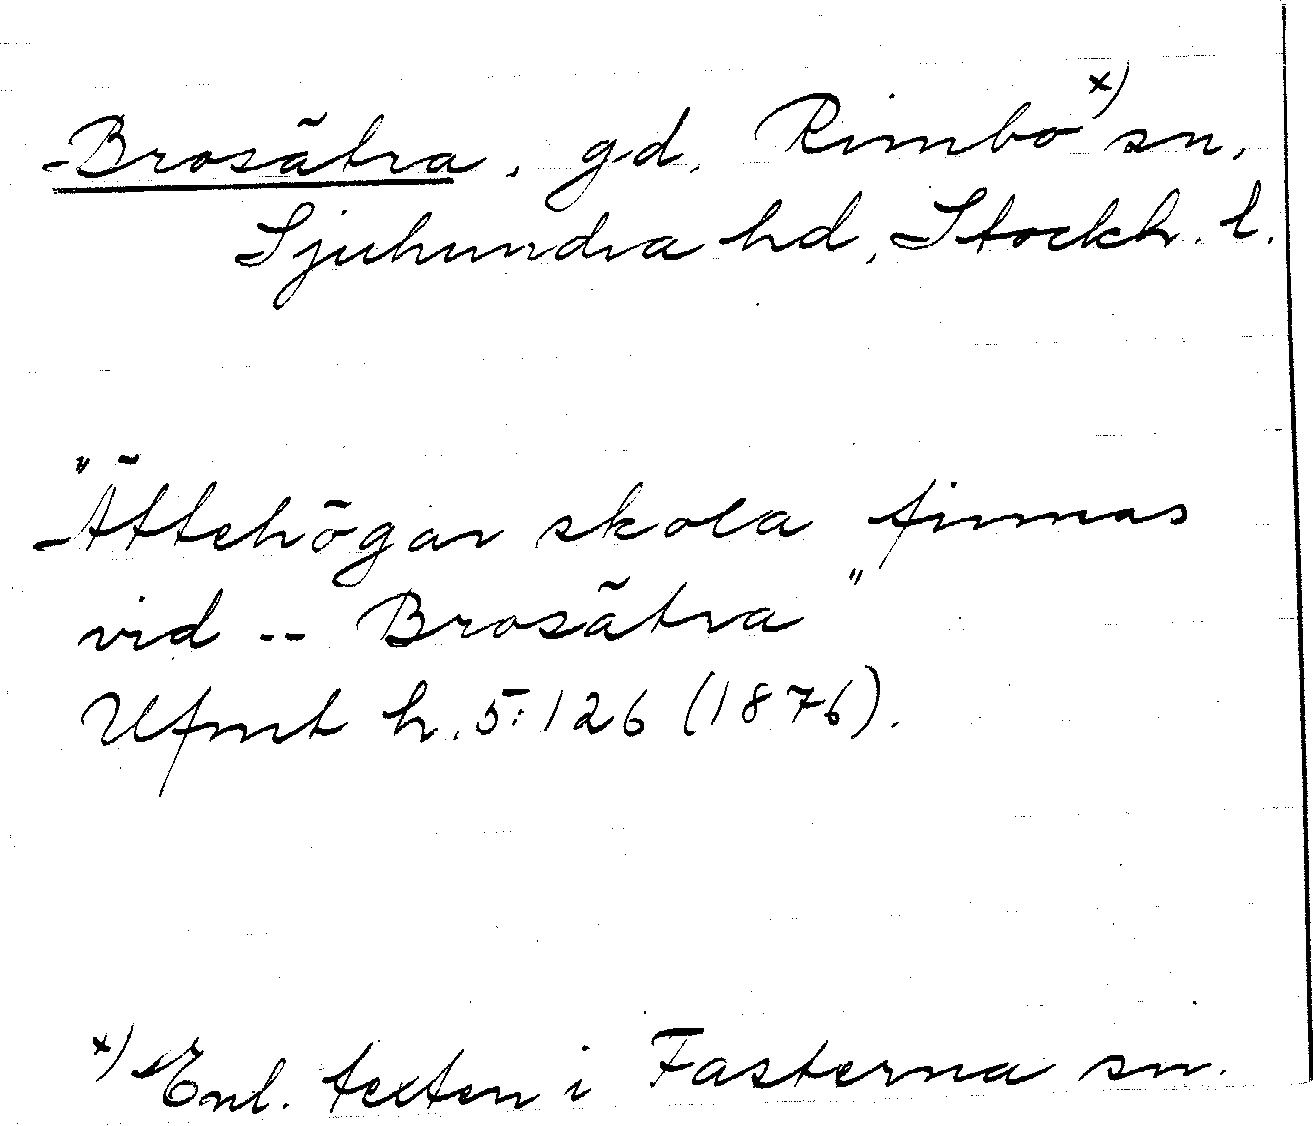 Brosätra, gd, Rimbo x) sn,
Sjuhundra hd, Stockh. l.
"Ättehögar skola finnas
vid -- Brosätra"
Ufmt h. 5:126 (1876).
x) Enl. texten i Fasterna sn.